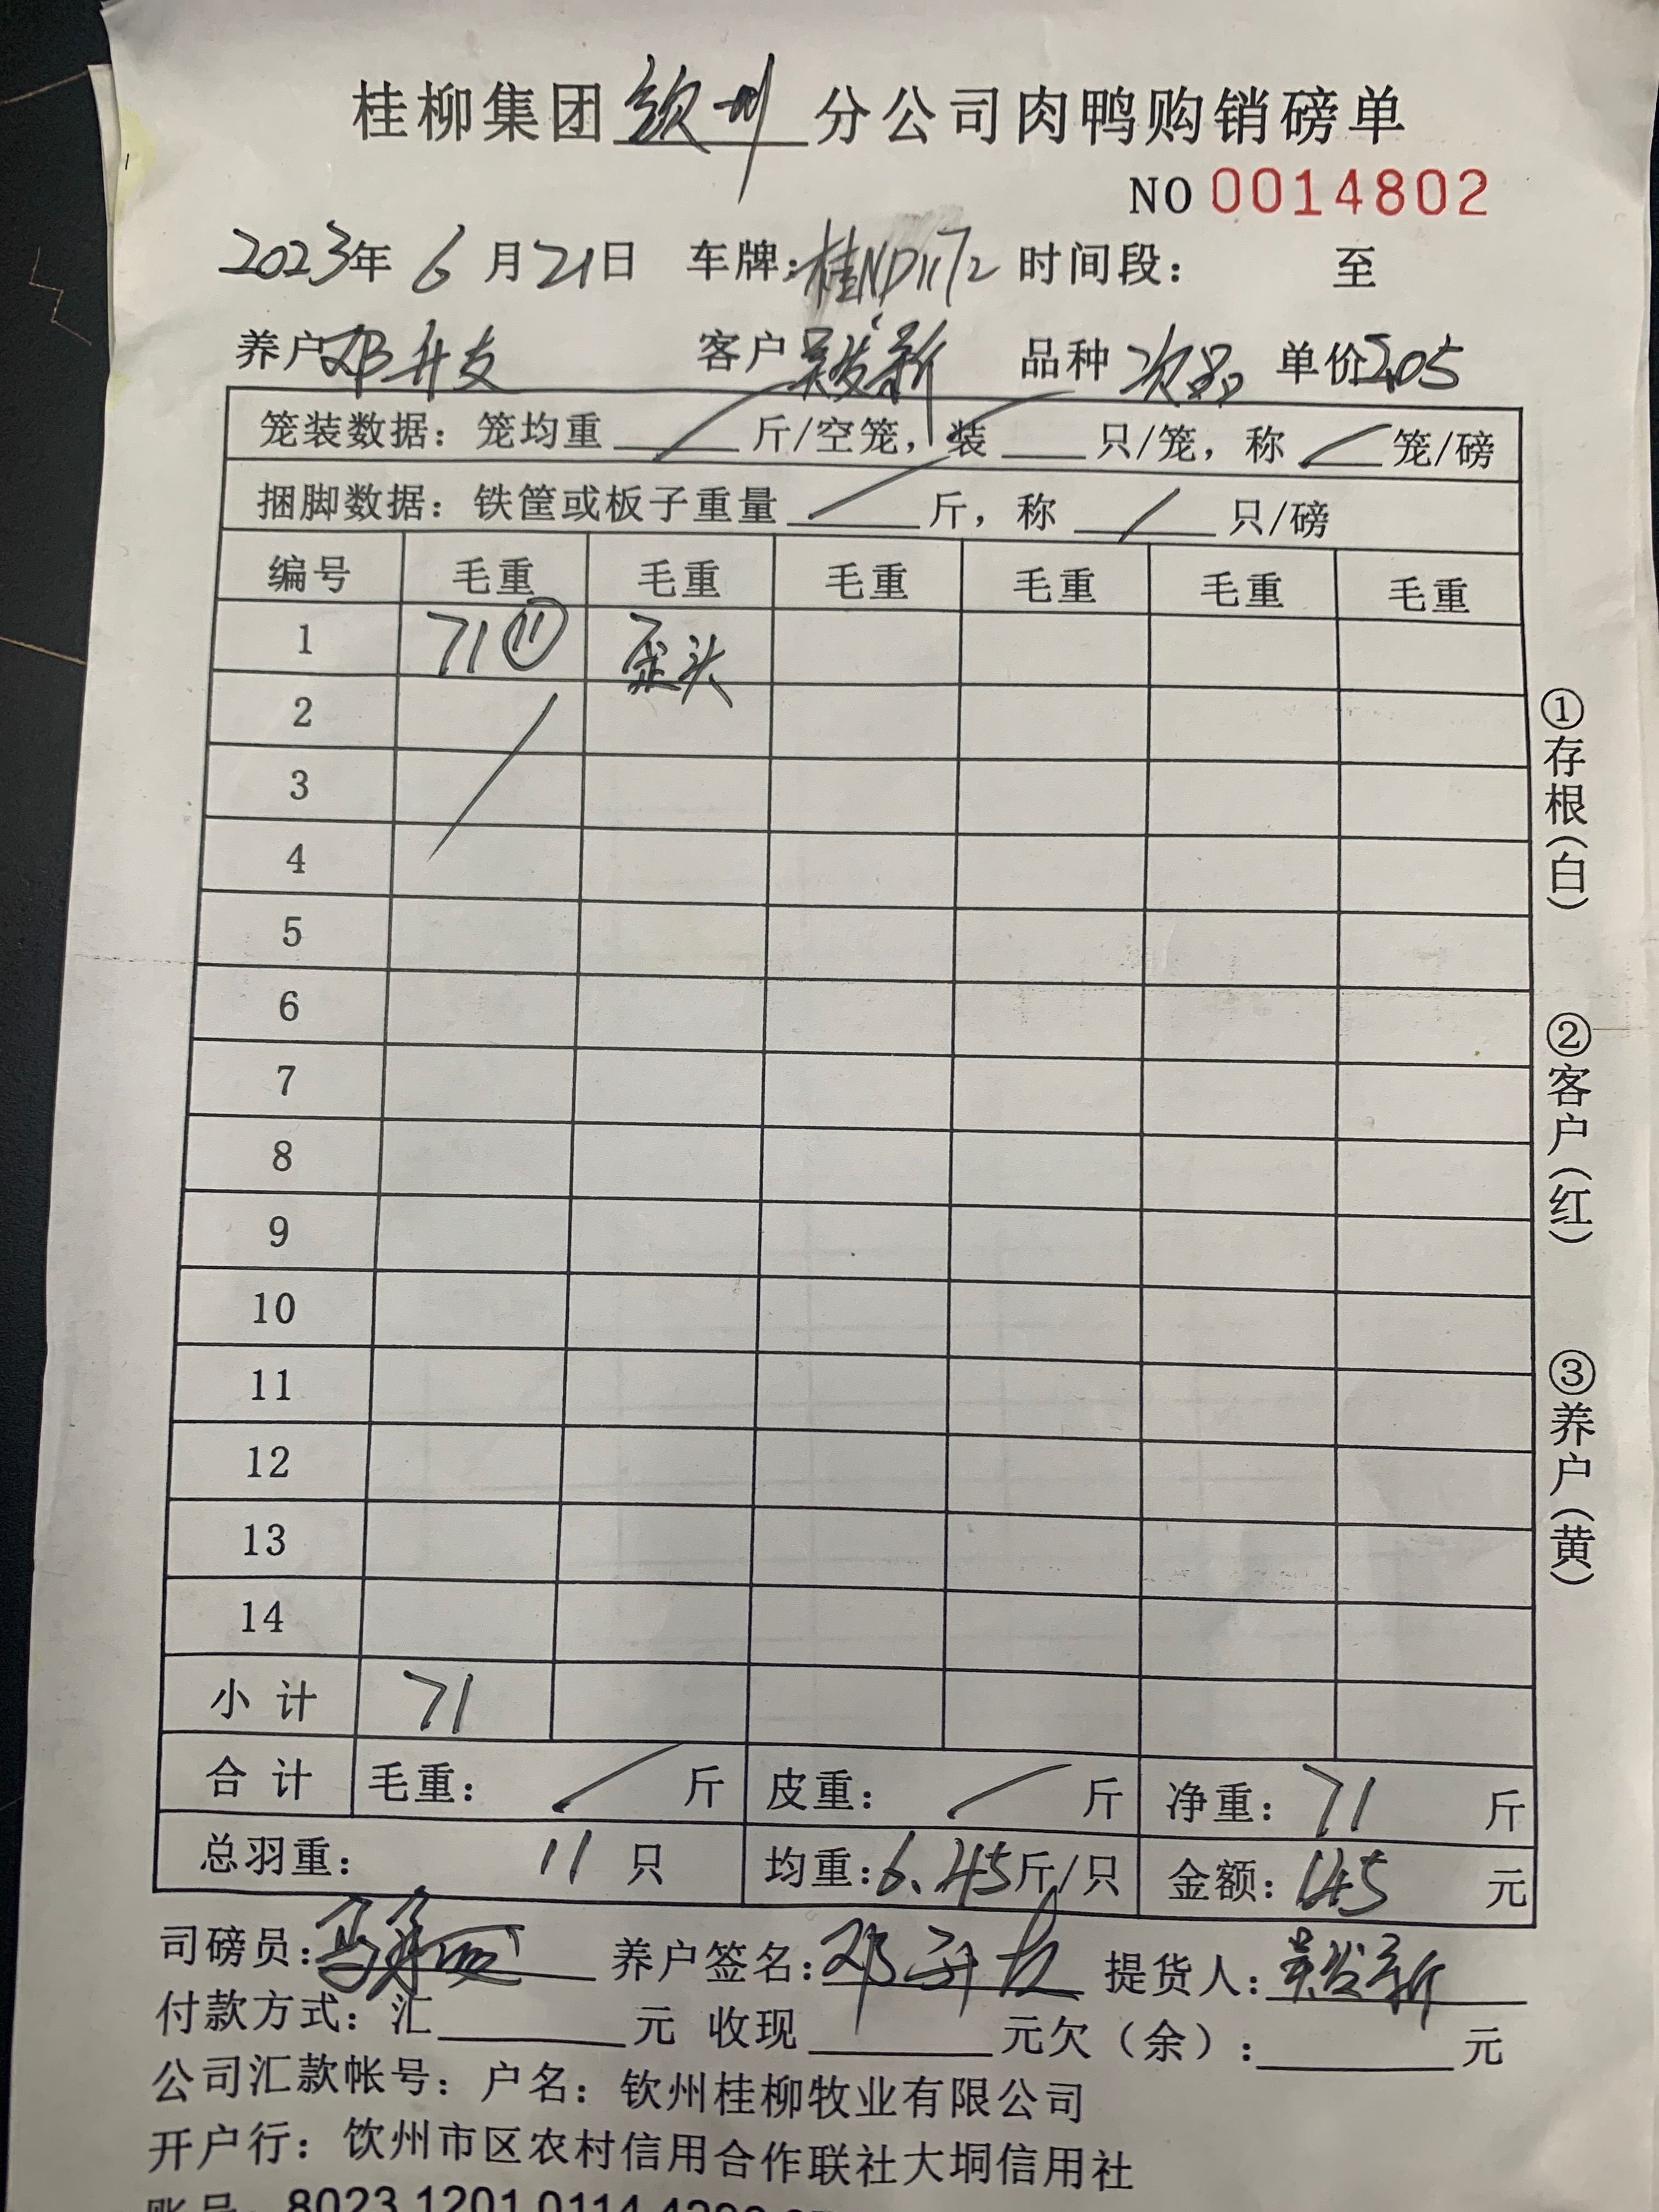 桂柳集团钦州分公司肉鸭购销磅单
NO 0014802
2023年 6 月 21日 车牌:桂ND1172 时间段: 至
养户 邓升支 客户 吴发新 品种 次品 单价 2.05
笼装数据: 笼均重 / 斤/空笼, 装 / 只/笼, 称 / 笼/磅
捆脚数据: 铁筐或板子重量 / 斤, 称 / 只/磅
编号 毛重 毛重 毛重 毛重 毛重 毛重
1 71⑪ 歪头
2
3
4
5
6
7
8
9
10
11
12
13
14
小计 71
合计 毛重: / 斤 皮重: / 斤 净重: 71 斤
总羽重: 11 只 均重: 6.45斤/只 金额: 145 元
司磅员: 养户签名: 邓 提货人: 吴发新
付款方式: 汇 元 收现 元欠(余): 元
公司汇款帐号: 户名: 钦州桂柳牧业有限公司
开户行: 钦州市区农村信用合作联社大垌信用社
账号: 8023 1201 0114
①存根(白)
②客户(红)
③养户(黄)